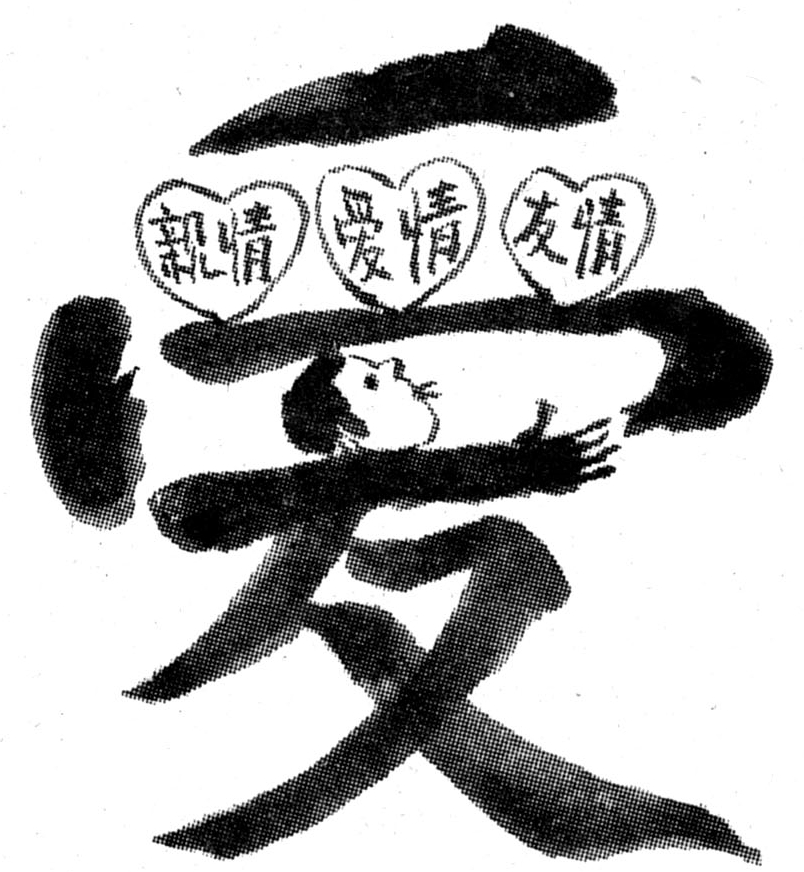 爱
親情 爱情 友情